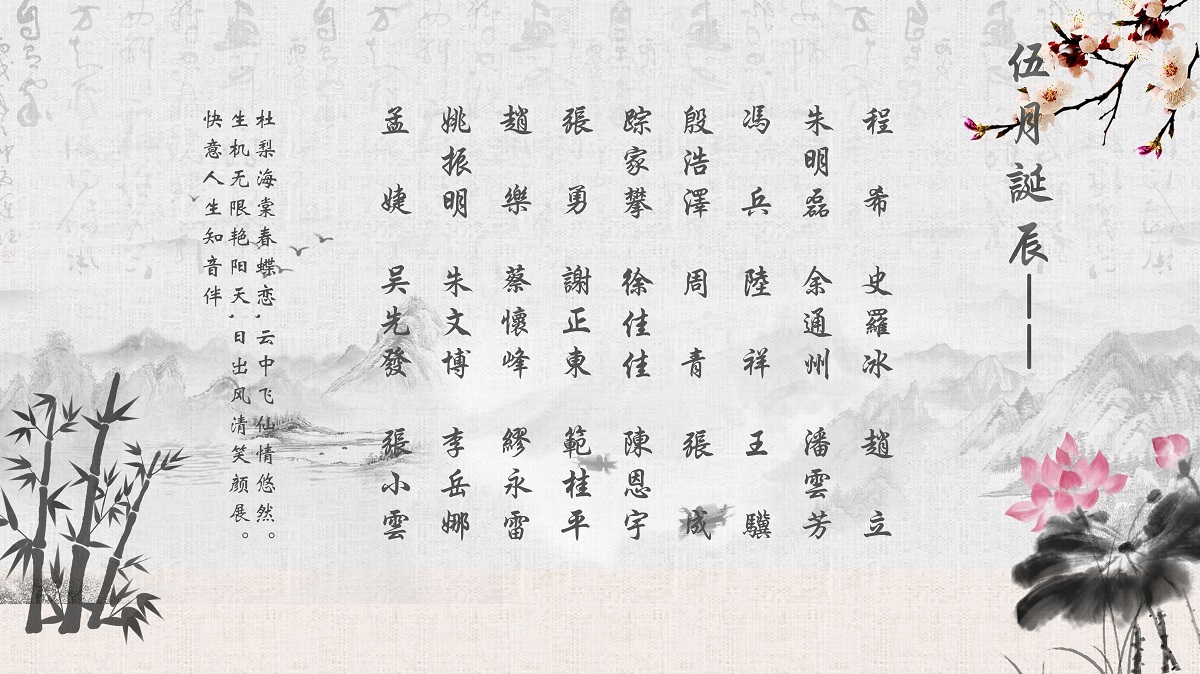 伍月誕辰——
程希 史羅冰 趙立
朱明磊 余通州 潘雲芳
馮兵 陸祥 王驥
殷浩澤 周青 張成
踪家攀 徐佳佳 陳恩宇
張勇 謝正東 範桂平
趙樂 蔡懷峰 繆永雷
姚振明 朱文博 李岳娜
孟婕 吴先發 張小雲
杜梨海棠春蝶恋,云中飞仙情悠然。
生机无限艳阳天,日出风清笑颜展。
快意人生知音伴